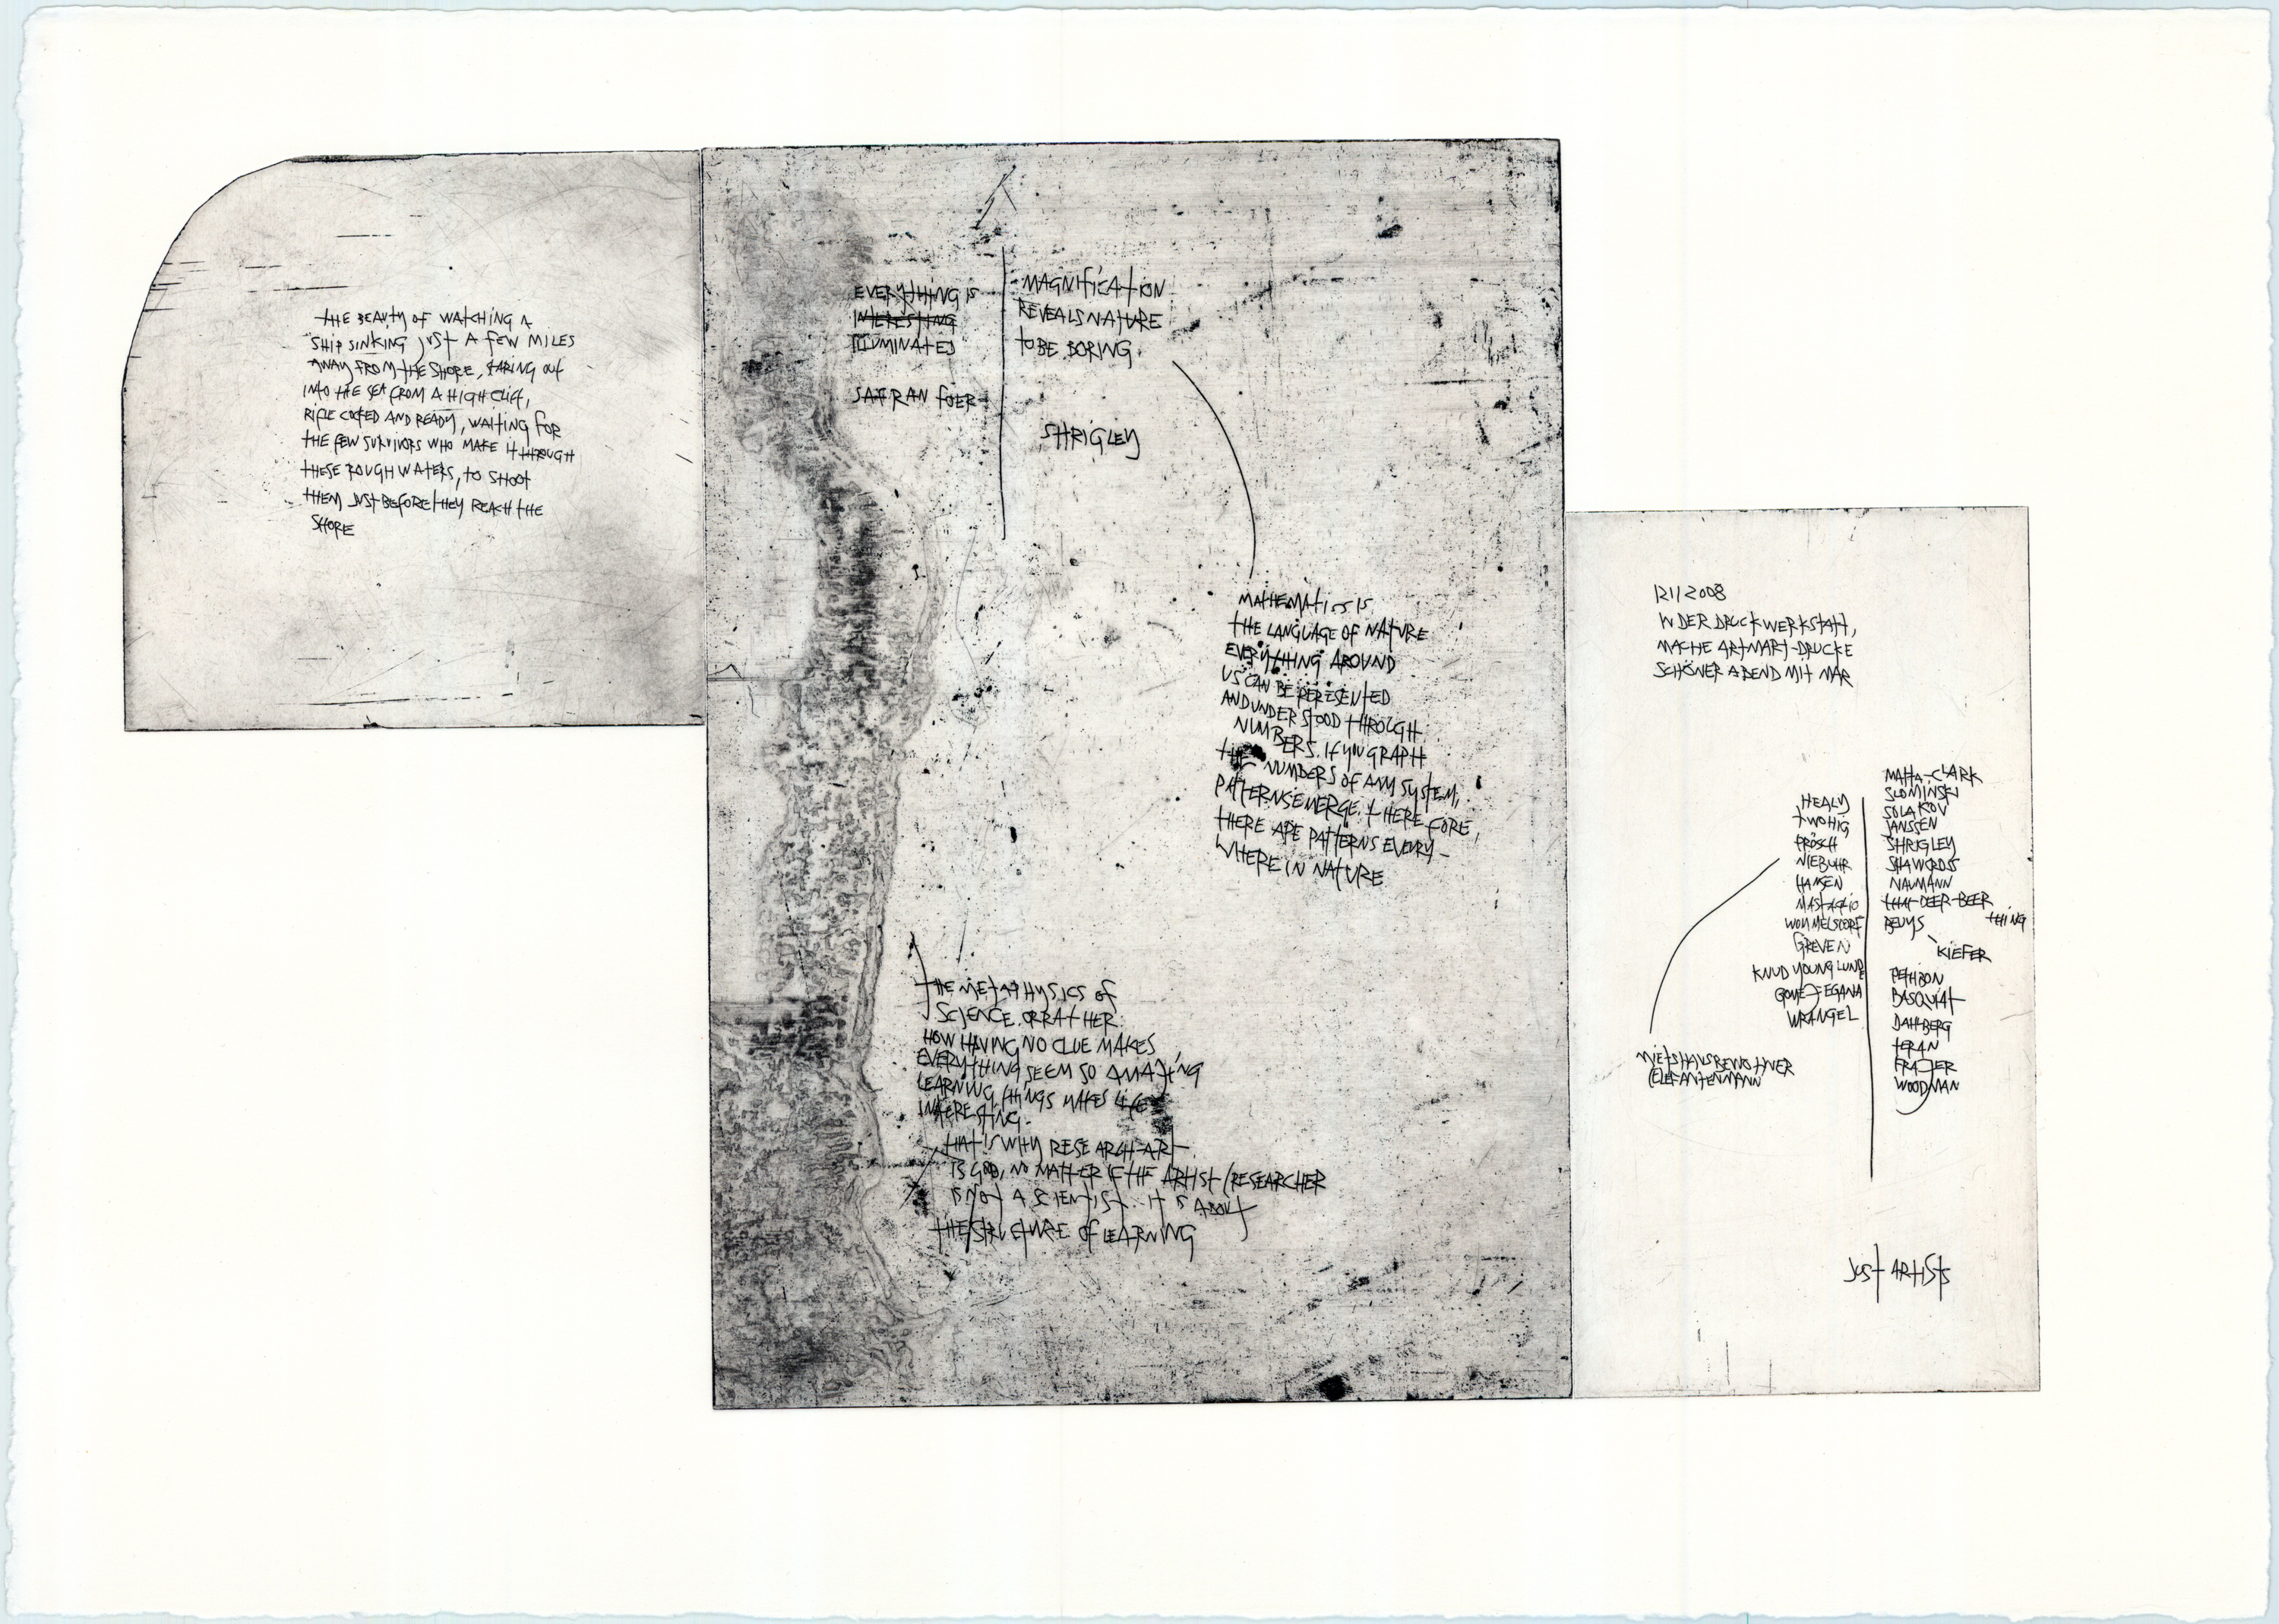 THE BEAUTY OF WATCHING A
SHIP SINKING JUST A FEW MILES
AWAY FROM THE SHORE, STARING OUT
INTO THE SEA FROM A HIGH CLIFF,
RIFLE COCKED AND READY, WAITING FOR
THE FEW SURVIVORS WHO MAKE IT THROUGH
THESE ROUGH WATERS, TO SHOOT
THEM JUST BEFORE THEY REACH THE
SHORE
EVERYTHING IS
INTERESTING
ILLUMINATED
SAFRAN FOER
MAGNIFICATION
REVEALS NATURE
TO BE BORING.
SHRIGLEY
MATHEMATICS IS
THE LANGUAGE OF NATURE
EVERYTHING AROUND
US CAN BE REPRESENTED
AND UNDERSTOOD THROUGH
NUMBERS. IF YOU GRAPH
THE NUMBERS OF ANY SYSTEM,
PATTERNS EMERGE. THEREFORE,
THERE ARE PATTERNS EVERY-
WHERE IN NATURE
THE METAPHYSICS OF
SCIENCE. OR RATHER:
HOW HAVING NO CLUE MAKES
EVERYTHING SEEM SO AMAZING
LEARNING THINGS MAKES LIFE
INTERESTING.
THAT'S WHY RESEARCH-ART
IS GOOD, NO MATTER IF THE ARTIST/RESEARCHER
IS NOT A SCIENTIST. IT IS ABOUT
THE STRUCTURE OF LEARNING
12112008
IN DER DRUCKWERKSTATT,
MACHE ARTMART-DRUCKE
SCHÖNER ABEND MIT MAR
HEALY
TWOHIG
FRÖSCH
NIEBUHR
HANSEN
MASTAGLIO
WOMMELSDORF
GREVEN
KNUD YOUNG LUNDE
GOMEZ EGANA
WRANGEL
MIETSHAUSBEWOHNER
(ELEFANTENMANN
MATTA-CLARK
SLOMINSKI
SOLAKOV
JANSSEN
SHRIGLEY
SHAWCROSS
NAUMANN
THAT DEER-BEER
THING
BEUYS
KIEFER
PETTIBON
BASQUIAT
DAHLBERG
TERAN
FRAZER
WOODMAN
JUST ARTISTS